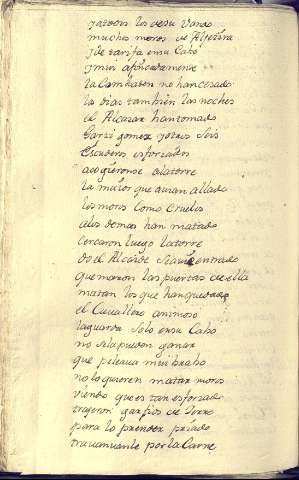 y todos los de su vando
muchos moros de Algezira
y de tarifa en su Cabo
y mui apriesadamente
la Combaten no han cesado
los dias tambien las noches
el Alcazar han tomado
Garzi gomez y otros seis
escuderos esforzados
acogieronse a la torre
la mejor que auian allado
los moros Como Crueles
a los demas han matado
cercaron luego la torre
do el Alcaide se auia entrado
quemaron las puertas de ella
matan los que han quedado
el Cauallero animoso
la guarda solo en su Cabo
no se la pueden ganar
que peleaua mui brabo
no lo quieren matar moros
viendo que es tan esforzado
trajeron garfios de yerro
para lo prender priado
trauauanle por la Carne